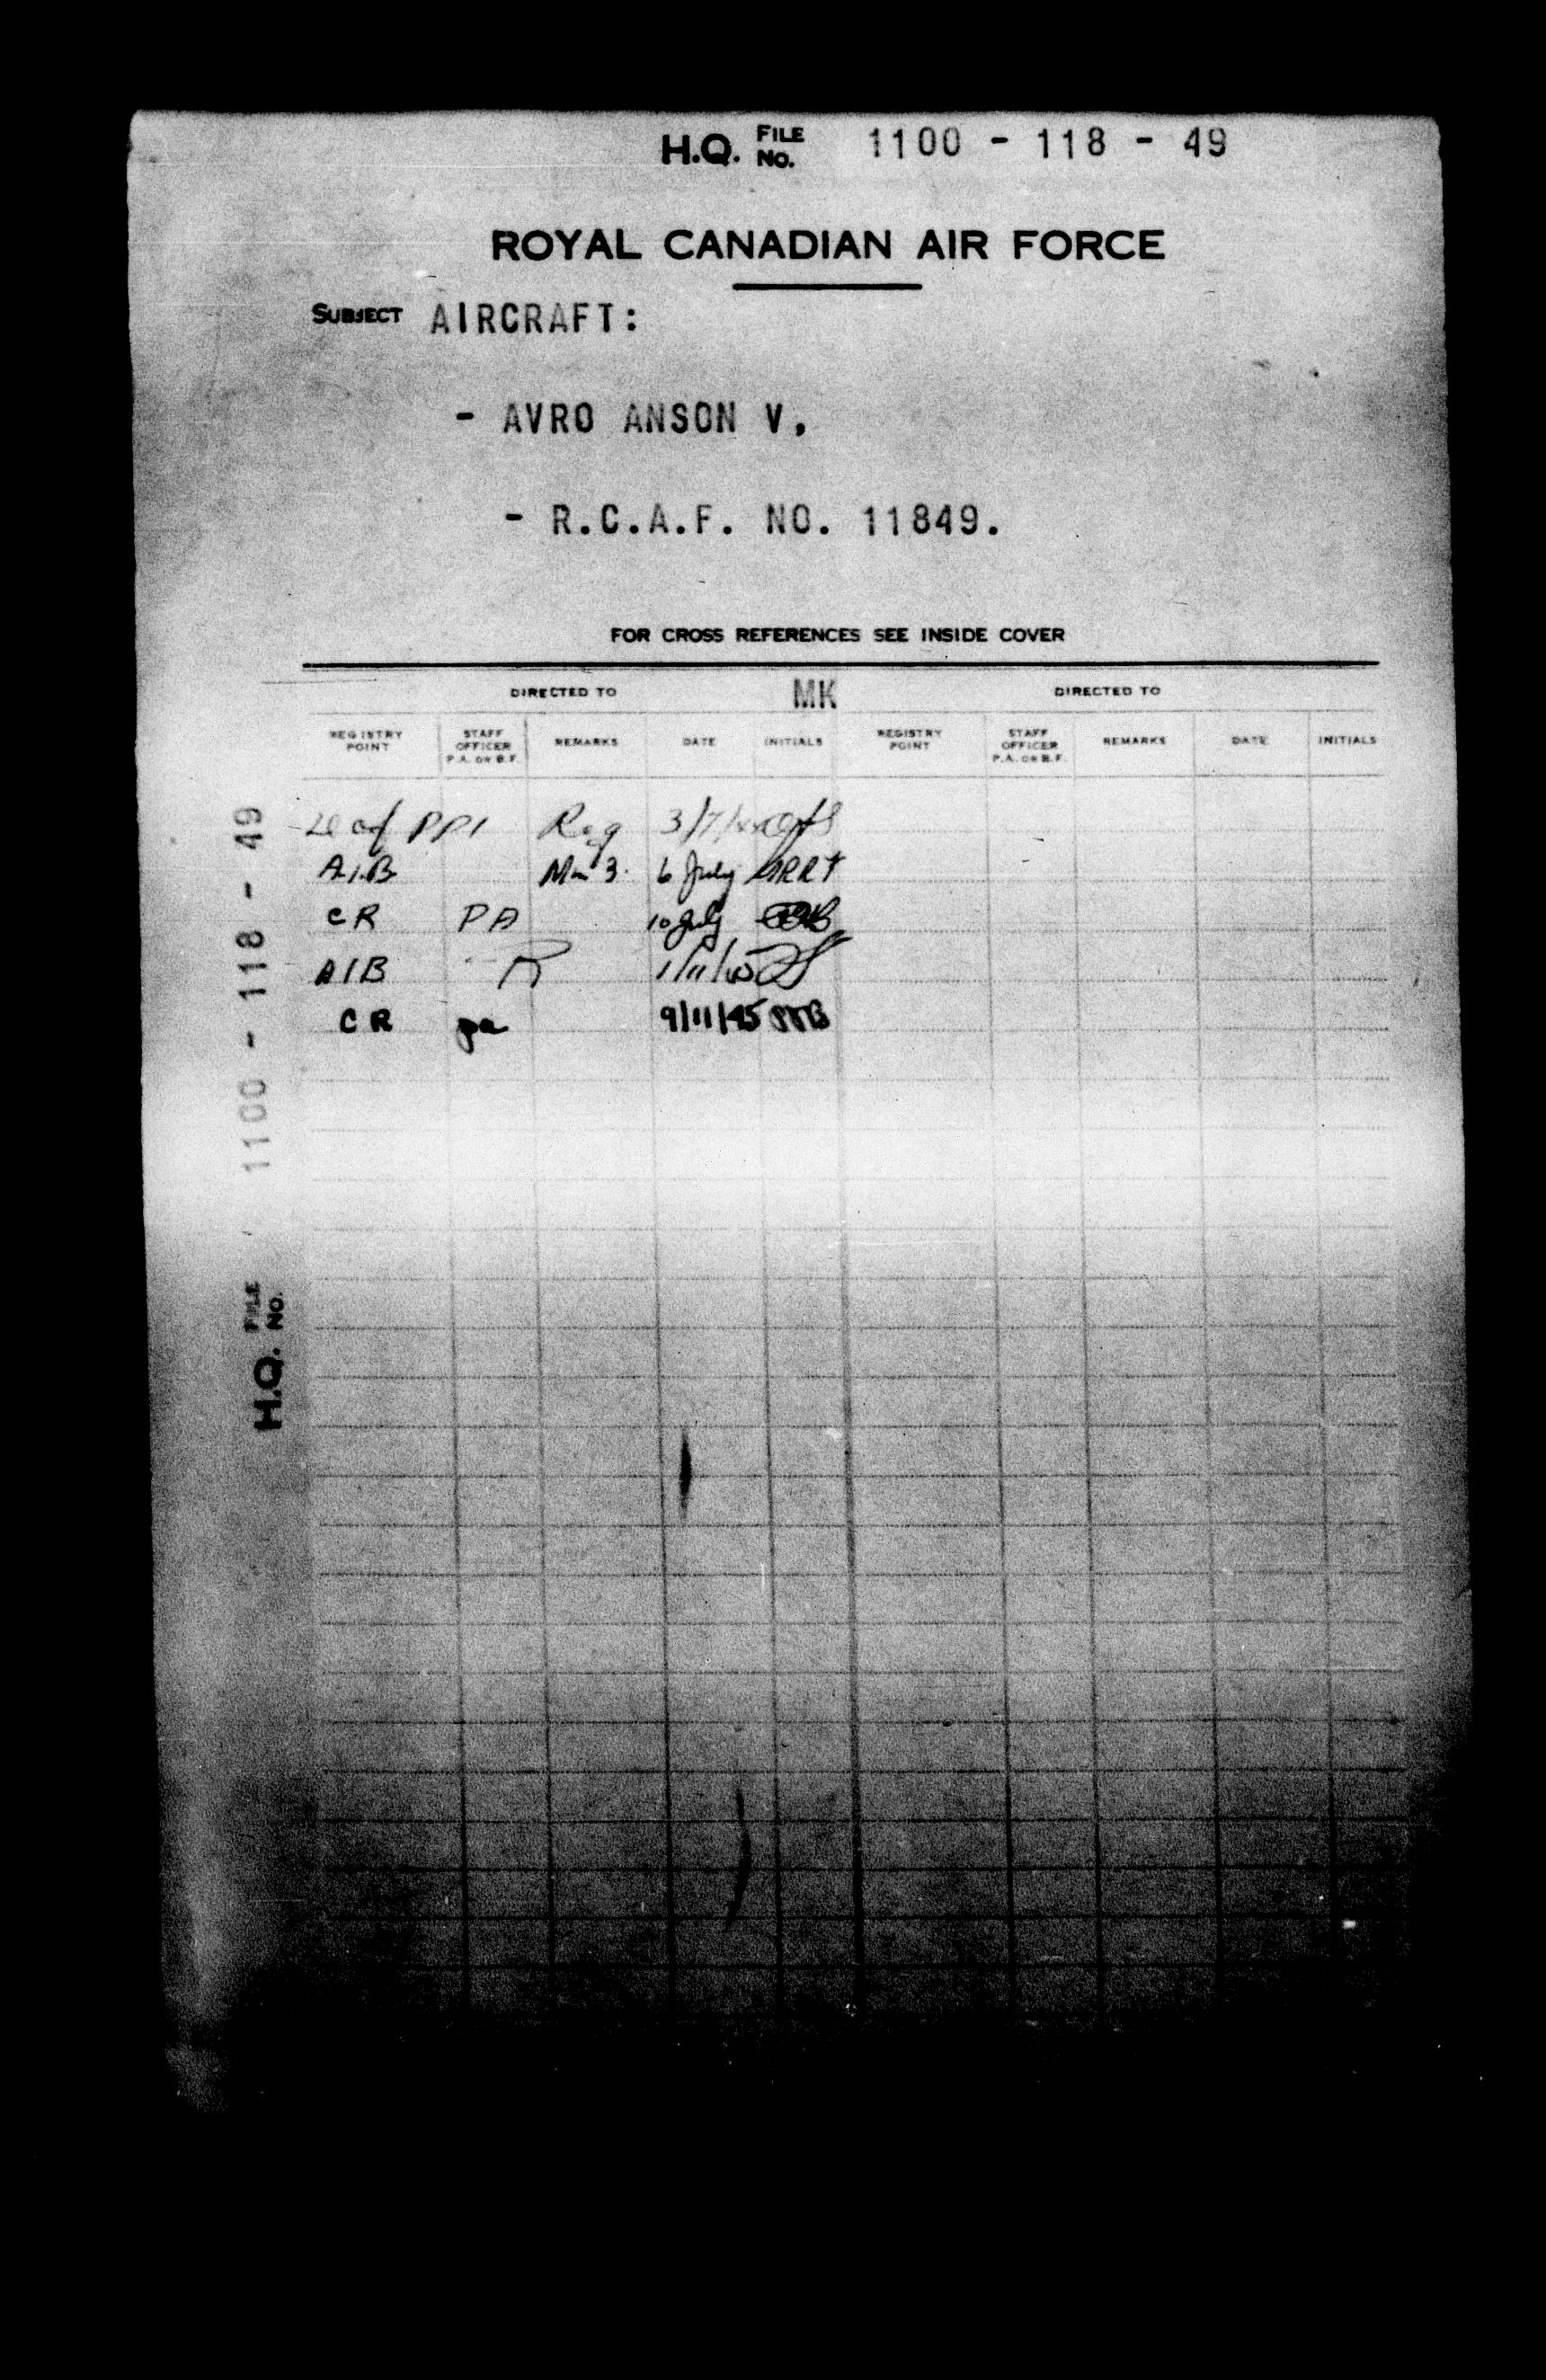 H.Q. FILE NO. 1100 - 118 - 49
ROYAL CANADIAN AIR FORCE
SUBJECT AIRCRAFT:
- AVRO ANSON V.
- R.C.A.F. NO. 11849.
FOR CROSS REFERENCES SEE INSIDE COVER
DIRECTED TO MK DIRECTED TO
REGISTRY POINT STAFF OFFICER P.A. OR B.F. REMARKS DATE INITIALS REGISTRY POINT STAFF OFFICER P.A. OR B.F. REMARKS DATE INITIALS
Reg 3/7/
A.I.B 6 July
CR PA 10 July
AIB 1/11/45
CR pa 9/11/45
H.Q. FILE NO. 1100 - 118 - 49